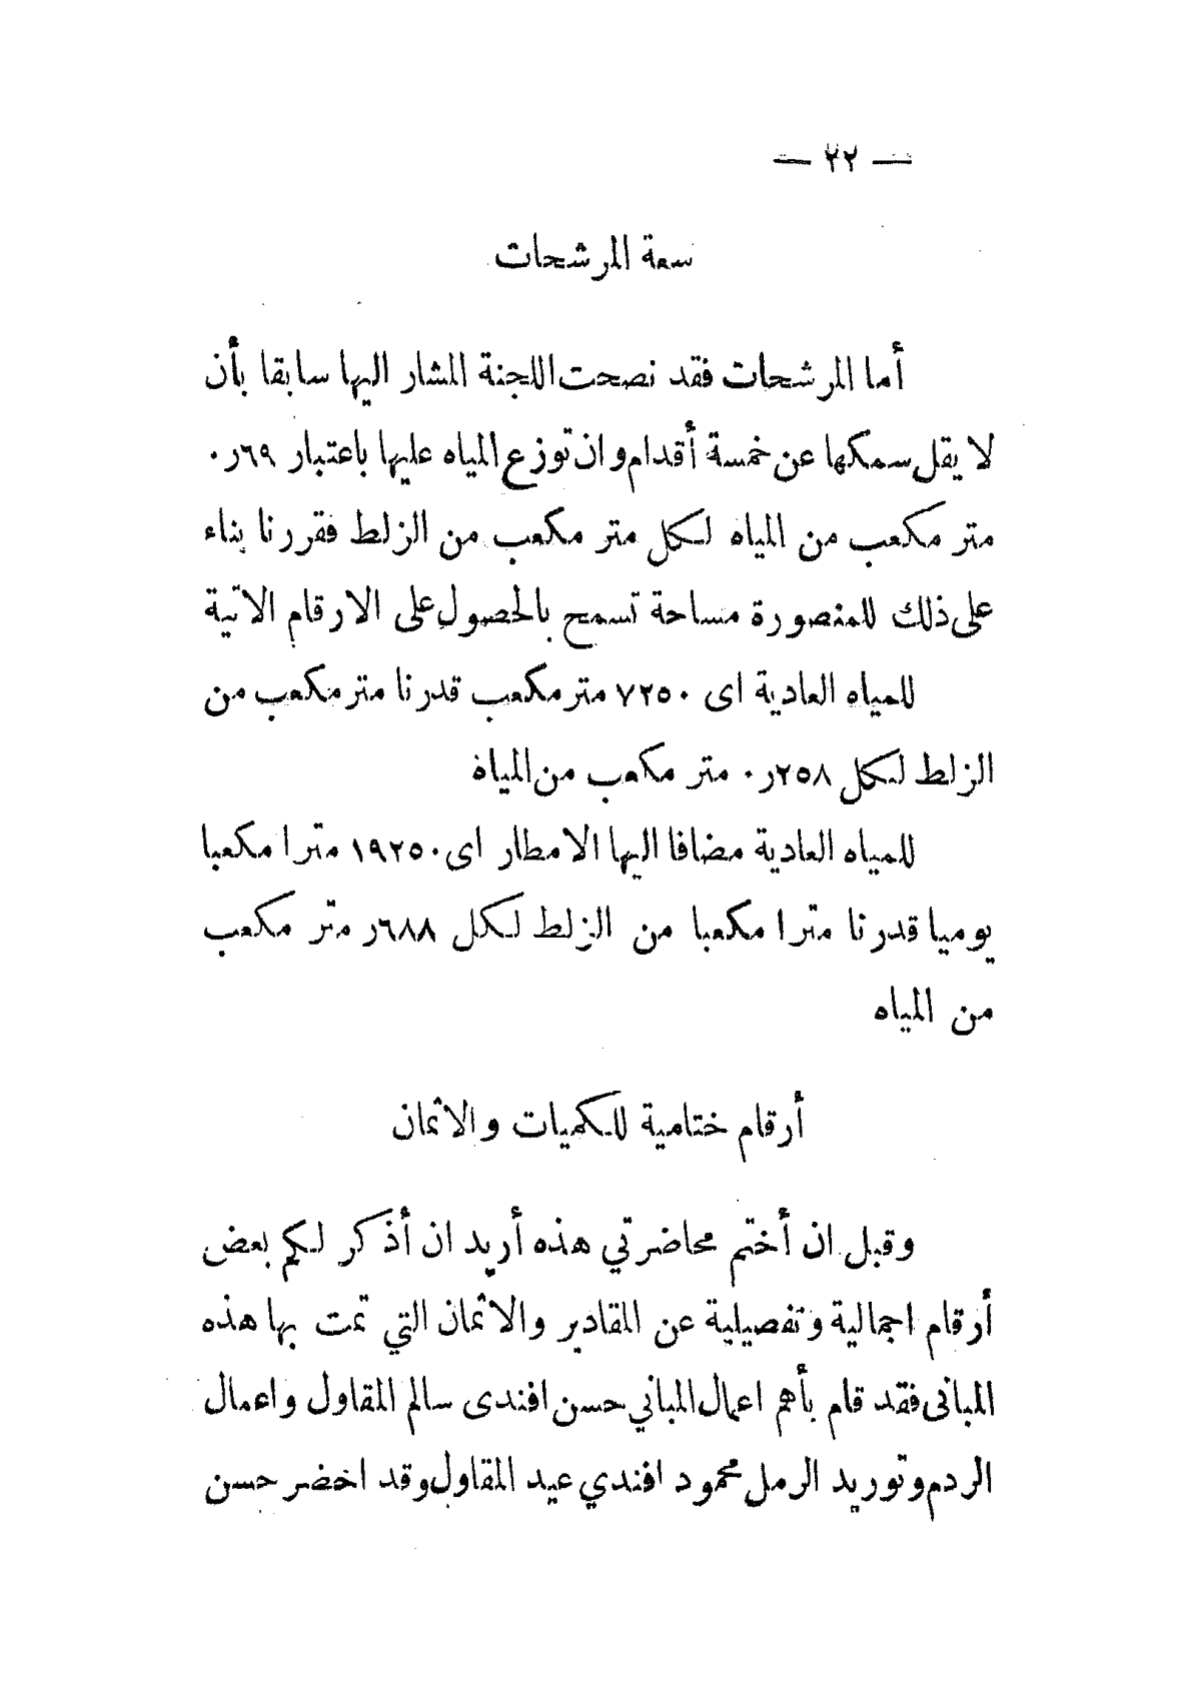 — ٢٢ —
سعة المرشحات
أما المرشحات فقد نصحت اللجنة المشار اليها سابقا بأن
لا يقل سمكها عن خمسة أقدام وان توزع المياه عليها باعتبار ٦٩ر٠
متر مكعب من المياه لكل متر مكعب من الزلط فقررنا بناء
على ذلك للمنصورة مساحة تسمح بالحصول على الارقام الاتية
للمياه العادية اى ٧٢٥٠ متر مكعب قدرنا متر مكعب من
الزلط لكل ٢٥٨ر٠ متر مكعب من المياة
للمياه العادية مضافا اليها الامطار اى ١٩٢٥٠ مترا مكعبا
يوميا قدرنا مترا مكعبا من الزلط لكل ٦٨٨ر متر مكعب
من المياه
أرقام ختامية للكميات والاثمان
وقبل ان أختم محاضرتي هذه أريد ان أذكر لكم بعض
أرقام اجمالية وتفصيلية عن المقادير والاثمان التي تمت بها هذه
المبانى فقد قام بأهم اعمال المباني حسن افندى سالم المقاول واعمال
الردم وتوريد الرمل محمود افندي عيد المقاول وقد اخضر حسن